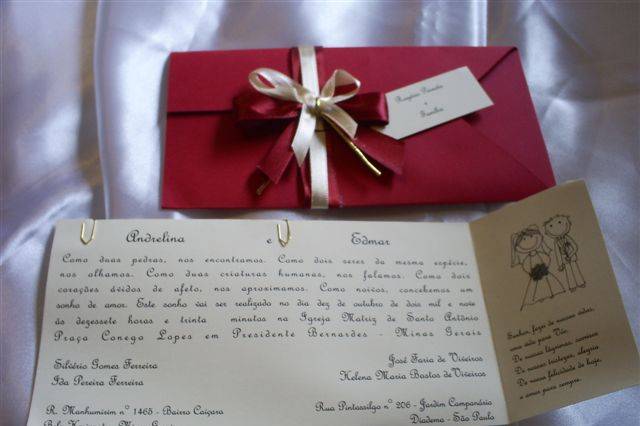 e
Família
Andrelina e Edmar
Como duas pedras, nos encontramos. Como dois seres da mesma espécie,
nos olhamos. Como duas criaturas humanas, nos falamos. Como dois
corações ávidos de afeto, nos aproximamos. Como noivos, concebemos um
sonho de amor. Este sonho vai ser realizado no dia dez de outubro de dois mil e nove
às dezessete horas e trinta minutos na Igreja Matriz de Santo Antônio
Praça Conego Lopes em Presidente Bernardes - Minas Gerais
Silvério Gomes Ferreira
Ida Pereira Ferreira
José Faria de Viveiros
Helena Maria Bastos de Viveiros
R. Manhumirim nº 1465 - Bairro Caiçara
Rua Pintassilgo nº 206 - Jardim Campanário
Diadema - São Paulo
Senhor, fazei de nossas vidas,
uma vida para Vós.
De nossas lágrimas, sorrisos
De nossas tristezas, alegria
De nossa felicidade de hoje,
o amor para sempre.